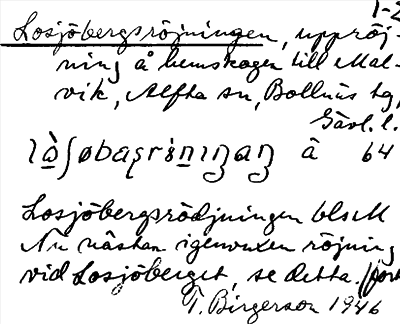 1-2
Losjöbergsröjningen, uppröj-
ning å hemskogen till Mal-
vik, Alfta sn, Bollnäs tg,
Gävl. l.
å 64
Losjöbergsrödjningen blsM
Nu nästan igenvuxen röjning
vid Losjöberget, se detta. (forts
T. Birgerson 1946